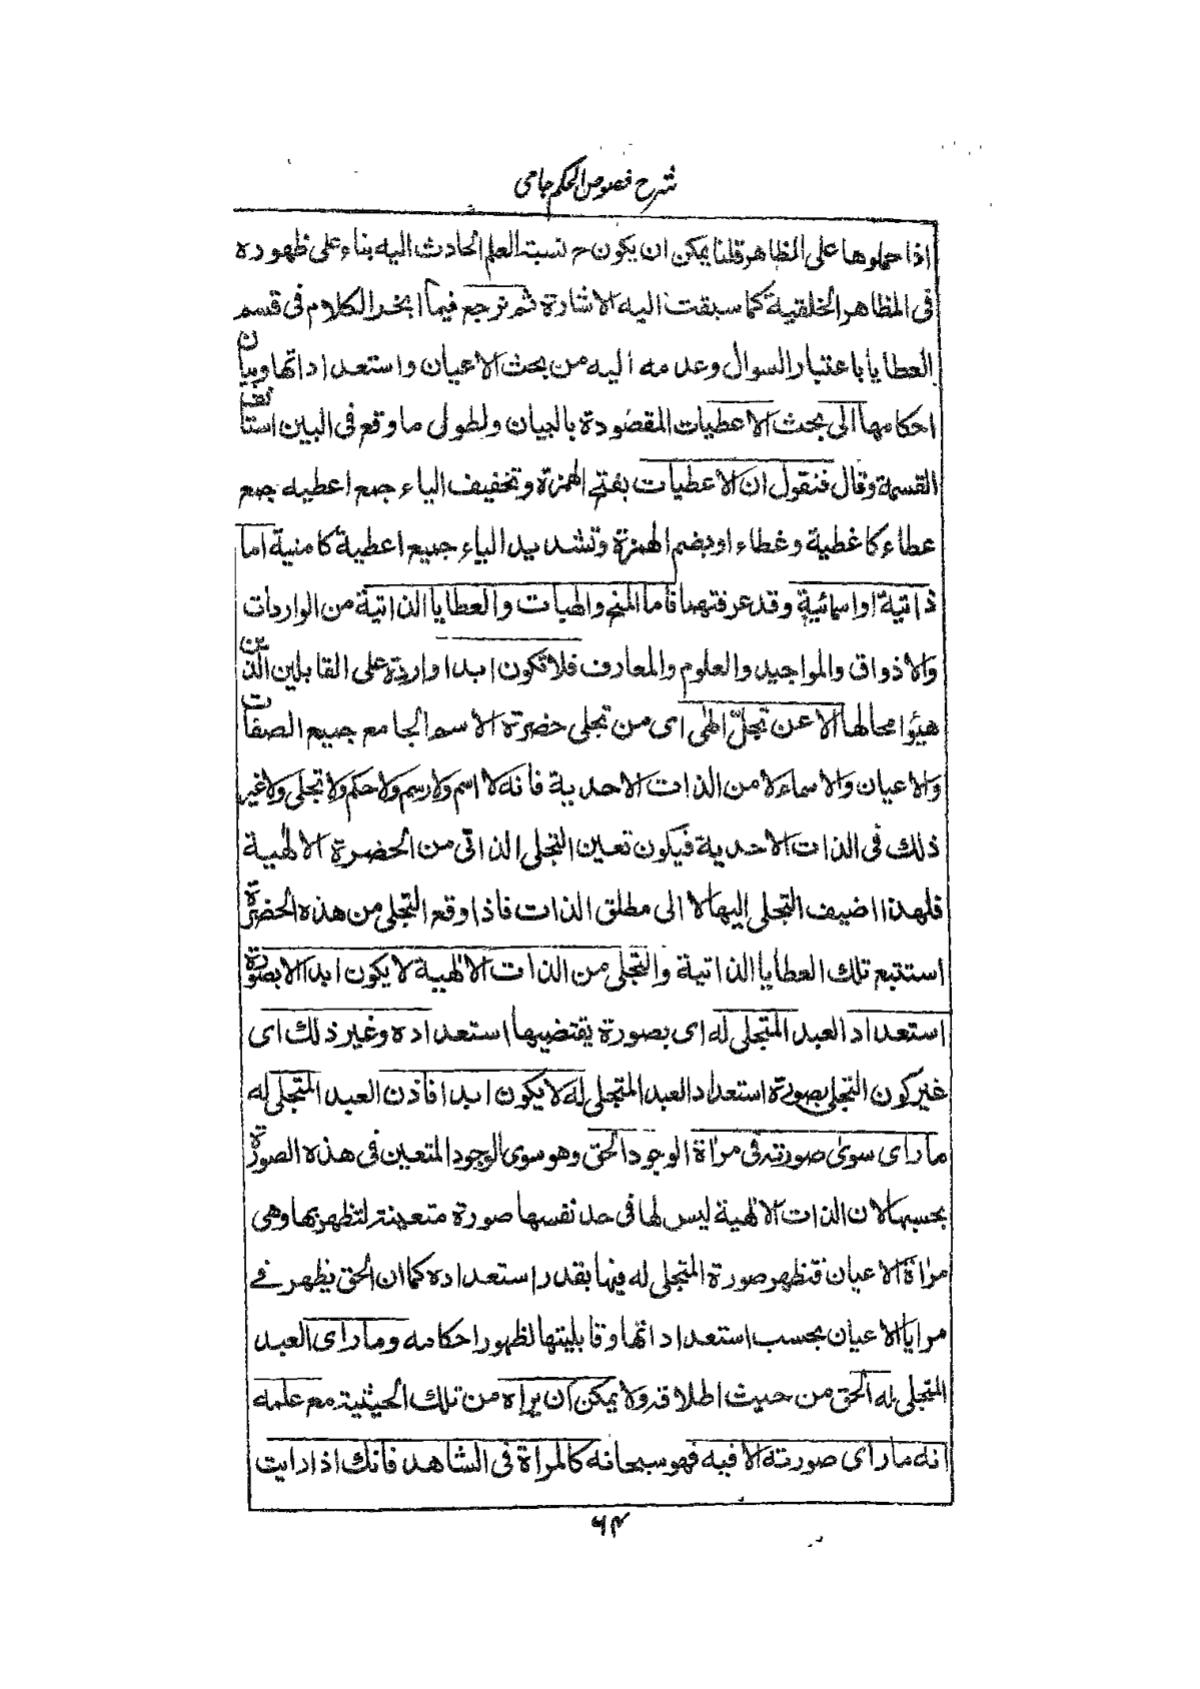 شرح فصوص الحکم جامی
اذا حملوها على المظاهر قلنا يمكن ان يكون ح نسبت العلم الحادث اليه بناء على ظهوره
فى المظاهر الخلقية كما سبقت اليه الاشارة ثم نرجع فيما انجر الكلام فى قسم
العطايا باعتبار السوال وعدمه اليه من بحث الاعيان واستعداداتها وبيان
احكامها الى بحث الاعطيات المقصودة بالبيان ولطول ما وقع فى البين استانف
القسمة وقال فنقول ان الاعطيات بفتح الهمزة وتخفيف الياء جمع اعطيه جمع
عطاء كاغطية وغطاء او بضم الهمزة وتشديد الياء جميع اعطية كامنية اما
ذاتية او اسمائية وقد عرفتهما فاما المنح والهبات والعطايا الذاتية من الواردات
والاذواق والمواجيد والعلوم والمعارف فلا تكون ابدا واردة على القابلين الذين
هيؤا محالها الا عن تجلّ الٰهى اى من تجلى حضرة الاسم الجامع جميع الصفات
والاعيان والاسماء لا من الذات الاحدية فانه لا اسم ولا رسم ولا حكم ولا تجلى ولا غير
ذلك فى الذات الاحدية فيكون تعين التجلى الذاتى من الحضرة الالٰهية
فلهذا اضيف التجلى اليها لا الى مطلق الذات فاذا وقع التجلى من هذه الحضرة
استتبع تلك العطايا الذاتية والتجلى من الذات الالٰهية لا يكون ابدا الا بصورة
استعداد العبد المتجلى له اى بصورة يقتضيها استعداده وغير ذلك اى
غير كون التجلى بصورة استعداد العبد المتجلى له لا يكون ابدا فاذن العبد المتجلى له
ما راى سوى صورته فى مراة الوجود الحق وهو سوى الوجود المتعين فى هذه الصورة
بحسبها لان الذات الالٰهية ليس لها فى حد نفسها صورة متعينة لتظهر بها وهى
مراة الاعيان فتظهر صورة المتجلى له فيها بقدر استعداده كما ان الحق يظهر فے
مرايا الاعيان بحسب استعداداتها وقابليتها لظهور احكامه وما راى العبد
المتجلى له الحق من حيث اطلاقه ولا يمكن ان يراه من تلك الحيثية مع علمه
انه ما راى صورته الا فيه فهو سبحانه كالمراة فى الشاهد فانك اذا رايت
٦۴